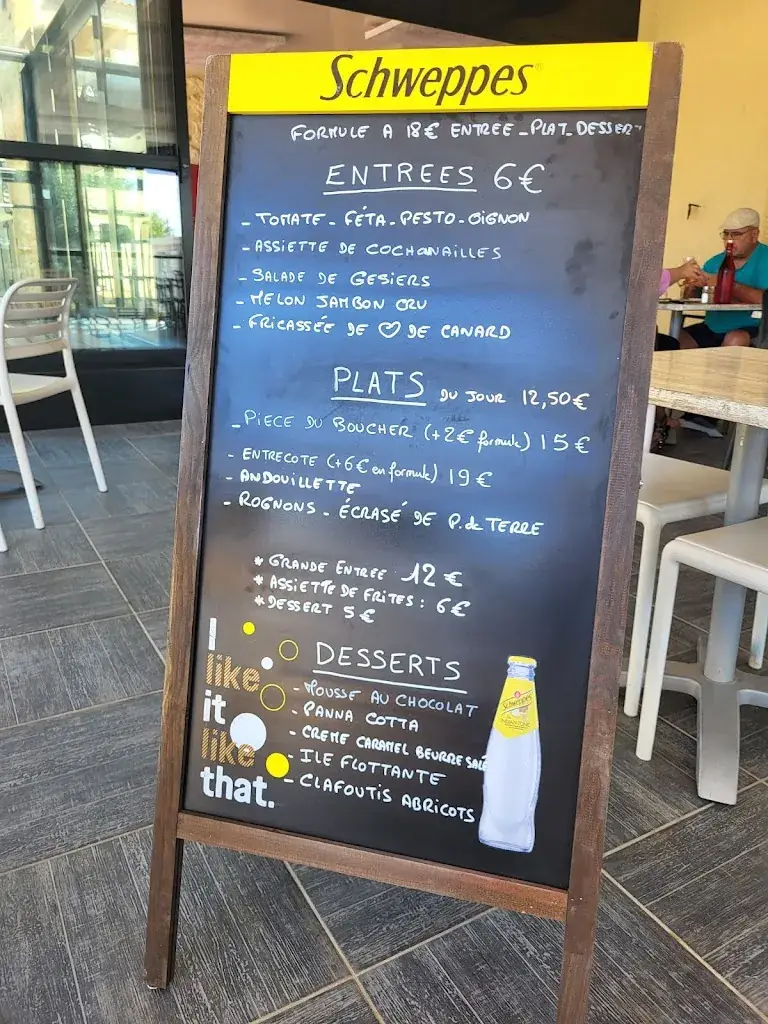 Schweppes
FORMULE A 18€ ENTREE_PLAT_DESSERT
ENTREES 6€
- TOMATE - FÉTA - PESTO - OIGNON
- ASSIETTE DE COCHONAILLES
- SALADE DE GESIERS
- MELON JAMBON CRU
- FRICASSÉE DE ♡ DE CANARD
PLATS DU JOUR 12,50€
- PIECE DU BOUCHER (+2€ formule) 15€
- ENTRECOTE (+6€ en formule) 19€
- ANDOUILLETTE
- ROGNONS - ÉCRASÉ DE P. de TERRE
* GRANDE ENTREE 12€
* ASSIETTE DE FRITES : 6€
* DESSERT 5€
DESSERTS
- MOUSSE AU CHOCOLAT
- PANNA COTTA
- CREME CARAMEL BEURRE SALÉ
- ILE FLOTTANTE
- CLAFOUTIS ABRICOTS
I
like
it
like
that.
Schweppes